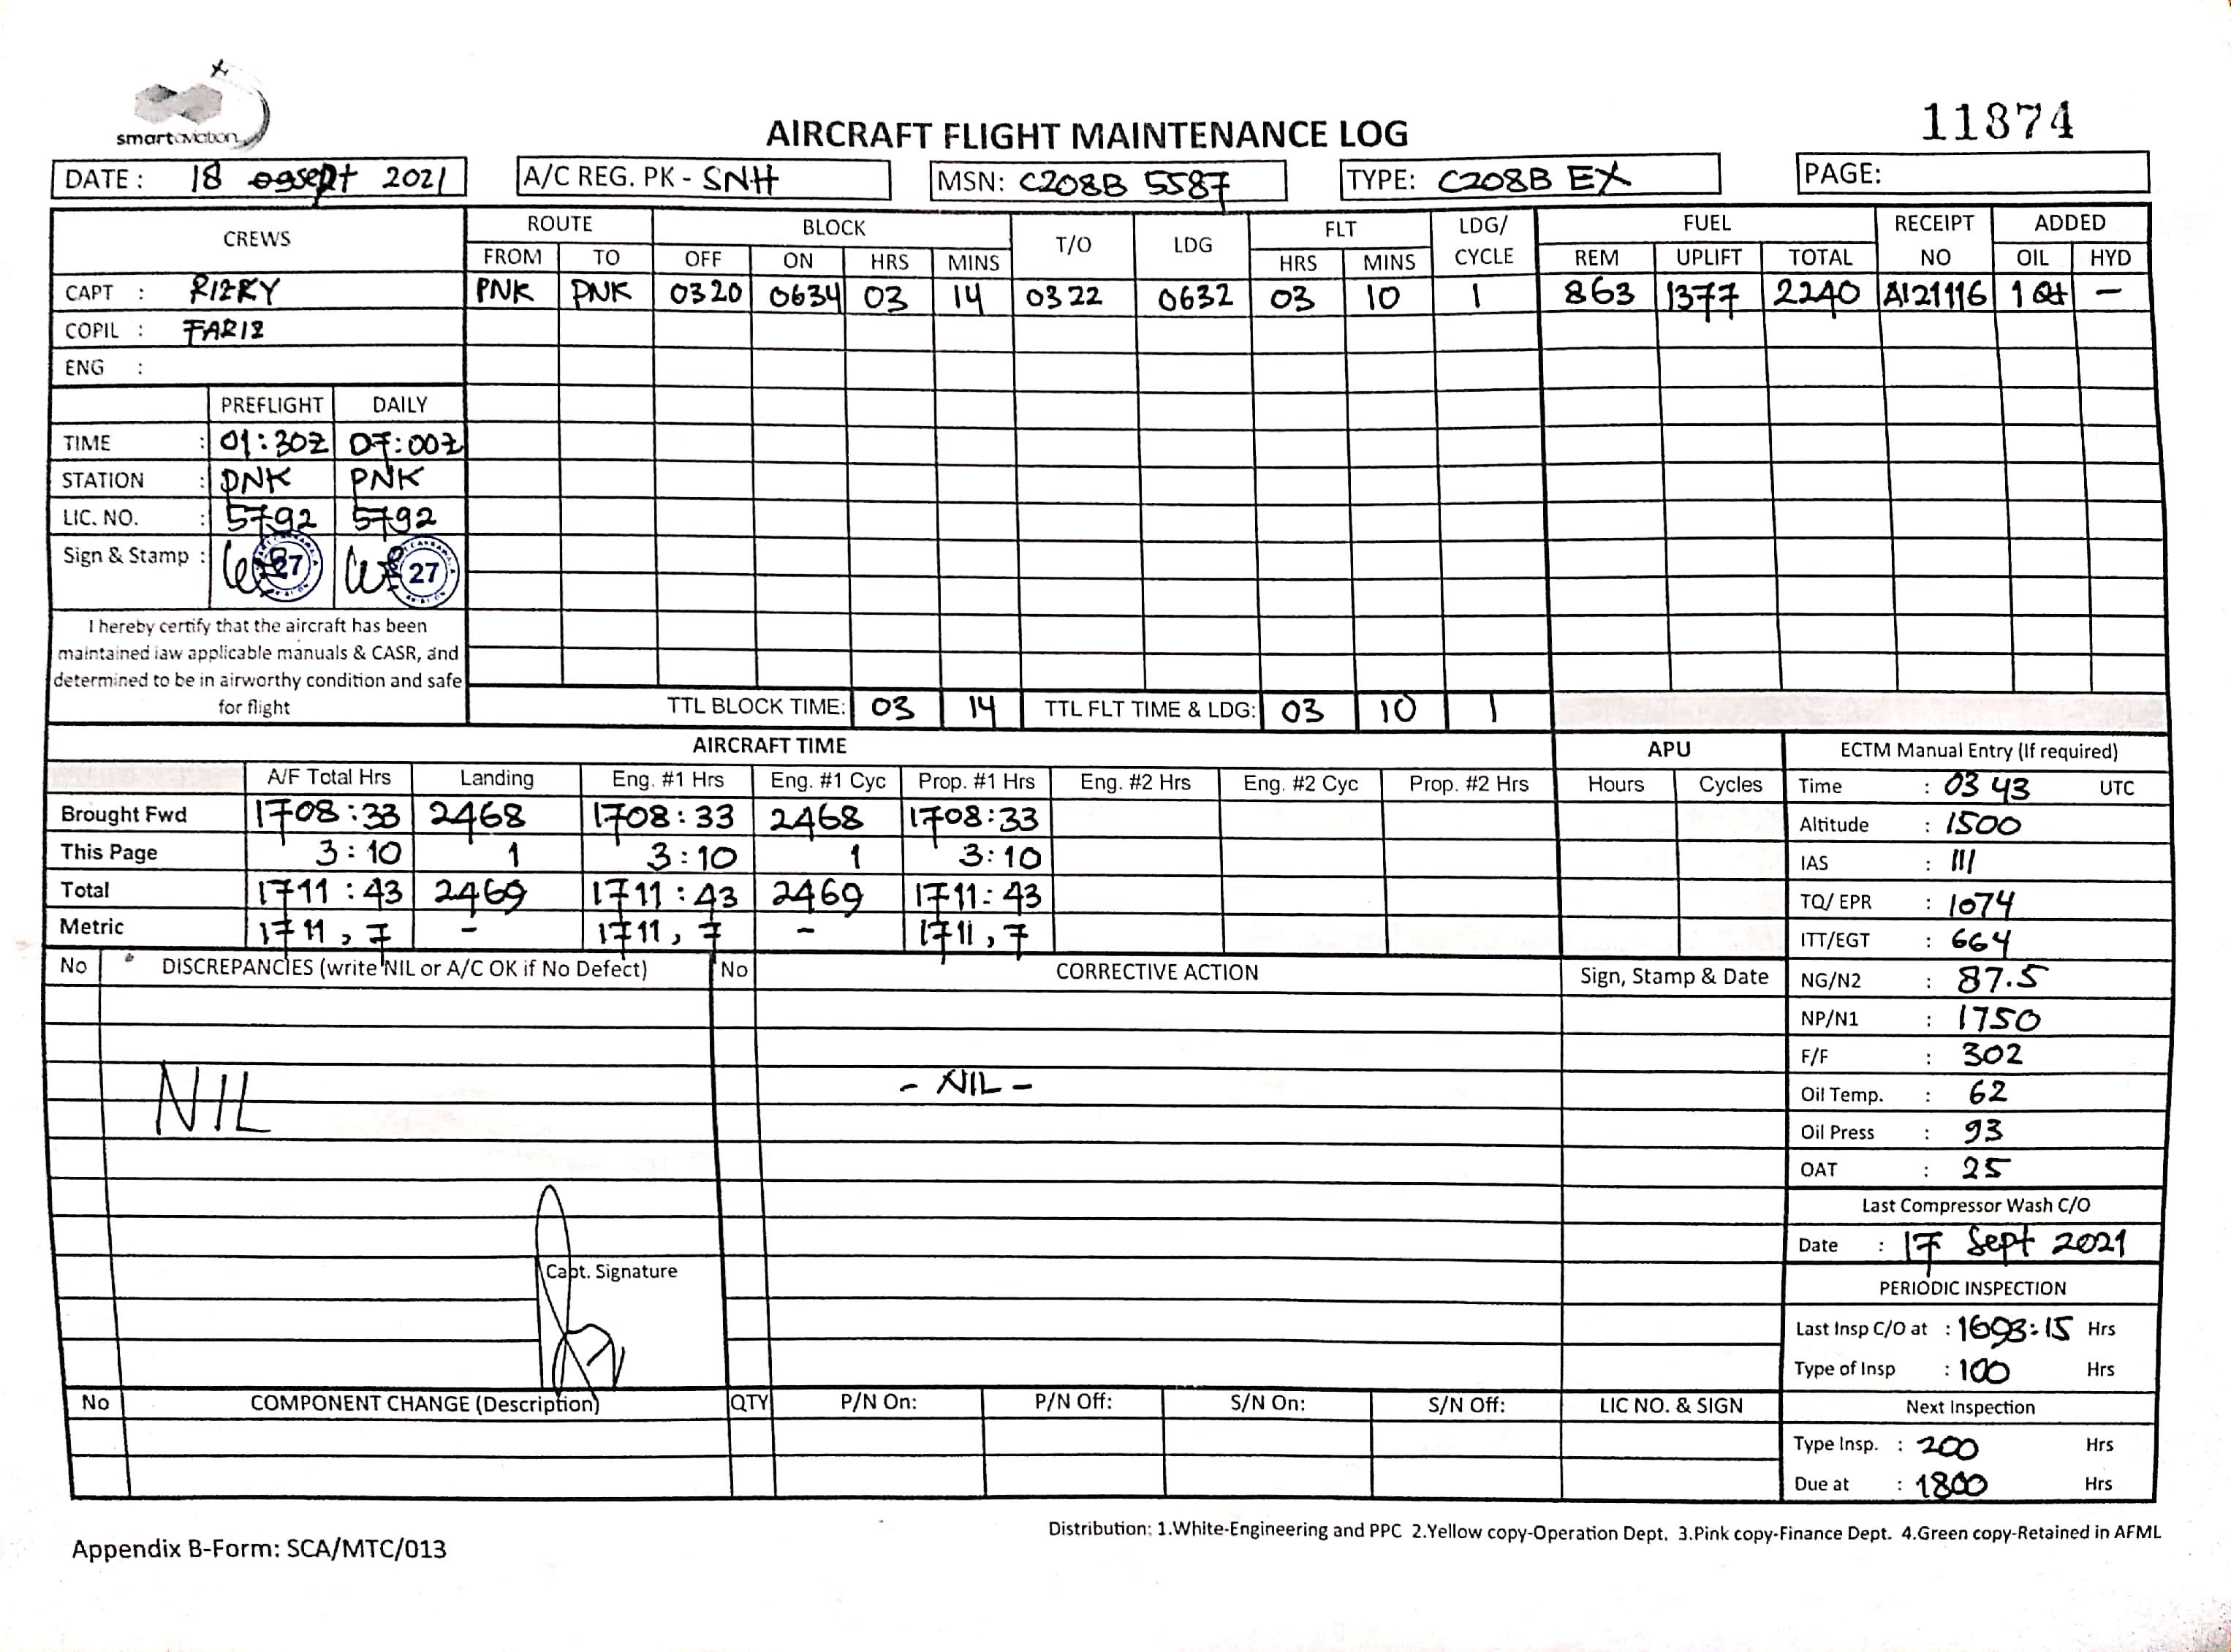 smart aviation
11874
AIRCRAFT FLIGHT MAINTENANCE LOG
DATE : 18 sept 2021 A/C REG. PK - SNH MSN: C208B 5587 TYPE: C208B EX PAGE:
CREWS ROUTE BLOCK T/O LDG FLT LDG/ CYCLE FUEL RECEIPT NO ADDED
FROM TO OFF ON HRS MINS HRS MINS REM UPLIFT TOTAL OIL HYD
CAPT : RIZKY PNK PNK 0320 0634 03 14 0322 0632 03 10 1 863 1377 2240 A121116 1 Qt -
COPIL : FARIZ
ENG :
PREFLIGHT DAILY
TIME : 01:30Z 07:00Z
STATION : PNK PNK
LIC. NO. : 5792 5792
Sign & Stamp : 27 27
I hereby certify that the aircraft has been
maintained iaw applicable manuals & CASR, and
determined to be in airworthy condition and safe
for flight
TTL BLOCK TIME: 03 14 TTL FLT TIME & LDG: 03 10 1
AIRCRAFT TIME APU ECTM Manual Entry (If required)
A/F Total Hrs Landing Eng. #1 Hrs Eng. #1 Cyc Prop. #1 Hrs Eng. #2 Hrs Eng. #2 Cyc Prop. #2 Hrs Hours Cycles Time : 03 43 UTC
Brought Fwd 1708:33 2468 1708:33 2468 1708:33 Altitude : 1500
This Page 3:10 1 3:10 1 3:10 IAS : 111
Total 1711:43 2469 1711:43 2469 1711:43 TQ/ EPR : 1074
Metric 1711,7 - 1711,7 - 1711,7 ITT/EGT : 664
No DISCREPANCIES (write NIL or A/C OK if No Defect) No CORRECTIVE ACTION Sign, Stamp & Date NG/N2 : 87.5
NP/N1 : 1750
F/F : 302
NIL - NIL - Oil Temp. : 62
Oil Press : 93
OAT : 25
Last Compressor Wash C/O
Date : 17 Sept 2021
Capt. Signature
PERIODIC INSPECTION
Last Insp C/O at : 1693:15 Hrs
Type of Insp : 100 Hrs
No COMPONENT CHANGE (Description) QTY P/N On: P/N Off: S/N On: S/N Off: LIC NO. & SIGN Next Inspection
Type Insp. : 200 Hrs
Due at : 1800 Hrs
Distribution: 1.White-Engineering and PPC 2.Yellow copy-Operation Dept. 3.Pink copy-Finance Dept. 4.Green copy-Retained in AFML
Appendix B-Form: SCA/MTC/013